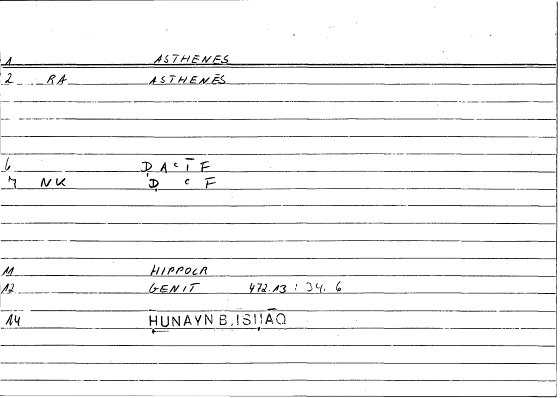 1 ASTHENES
2 RA ASTHENĒS
6 ḌAʿĪF
7 NK Ḍ ʿ F
11 HIPPOCR
12 GENIT 472.13 : 34. 6
14 ḤUNAYN B. ISḤĀQ